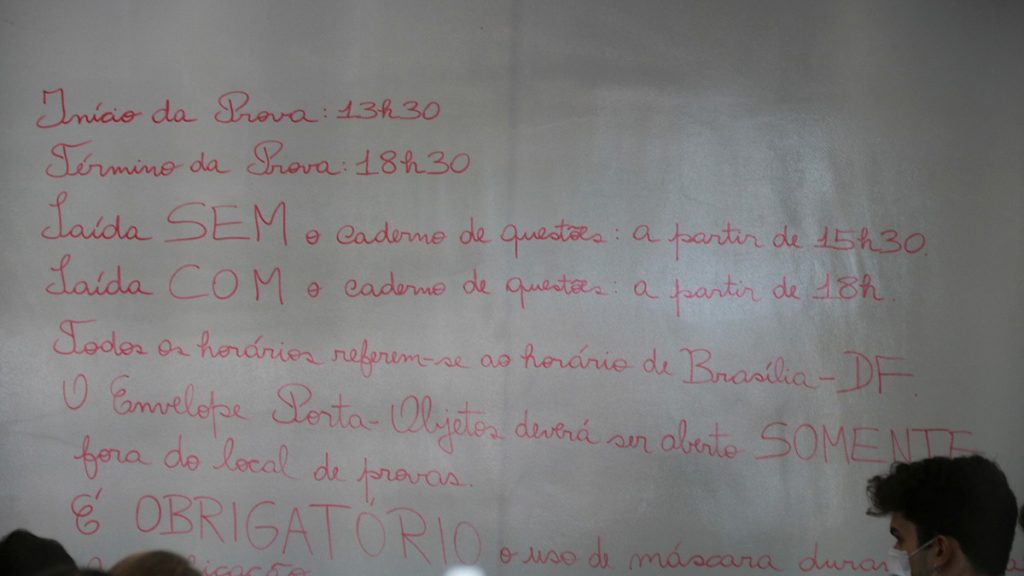 Início da Prova: 13h30
Término da Prova: 18h30
Saída SEM o caderno de questões: a partir de 15h30.
Saída COM o caderno de questões: a partir de 18h.
Todos os horários referem-se ao horário de Brasília-DF.
O Envelope Porta-Objetos deverá ser aberto SOMENTE
fora do local de provas.
É OBRIGATÓRIO o uso de máscara